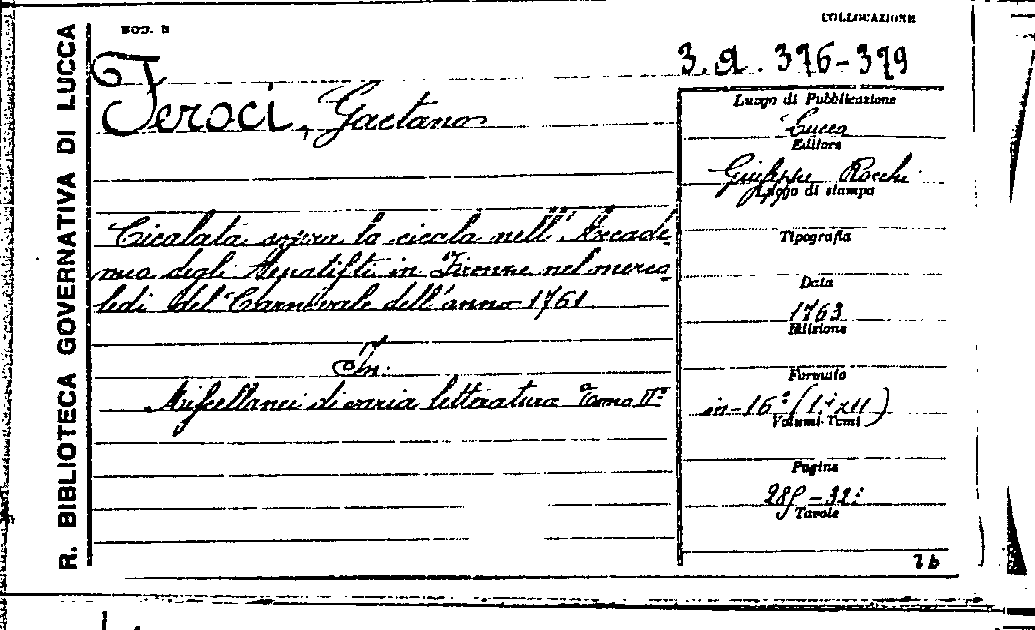 R. BIBLIOTECA GOVERNATIVA DI LUCCA
MOD. B
COLLOCAZIONE
3. a. 376-379
Feroci, Gaetano
Cicalata sopra la cicala nell' Accade-
mia degli Apatisti in Firenze nel merco-
ledì del Carnevale dell'anno 1761
In:
Miscellanei di varia letteratura Tomo II°
Luogo di Pubblicazione
Lucca
Editore
Giuseppe Rocchi
Luogo di stampa
Tipografia
Data
1763
Edizione
Formato
in-16°
Volumi-Tomi
Pagine
Tavole